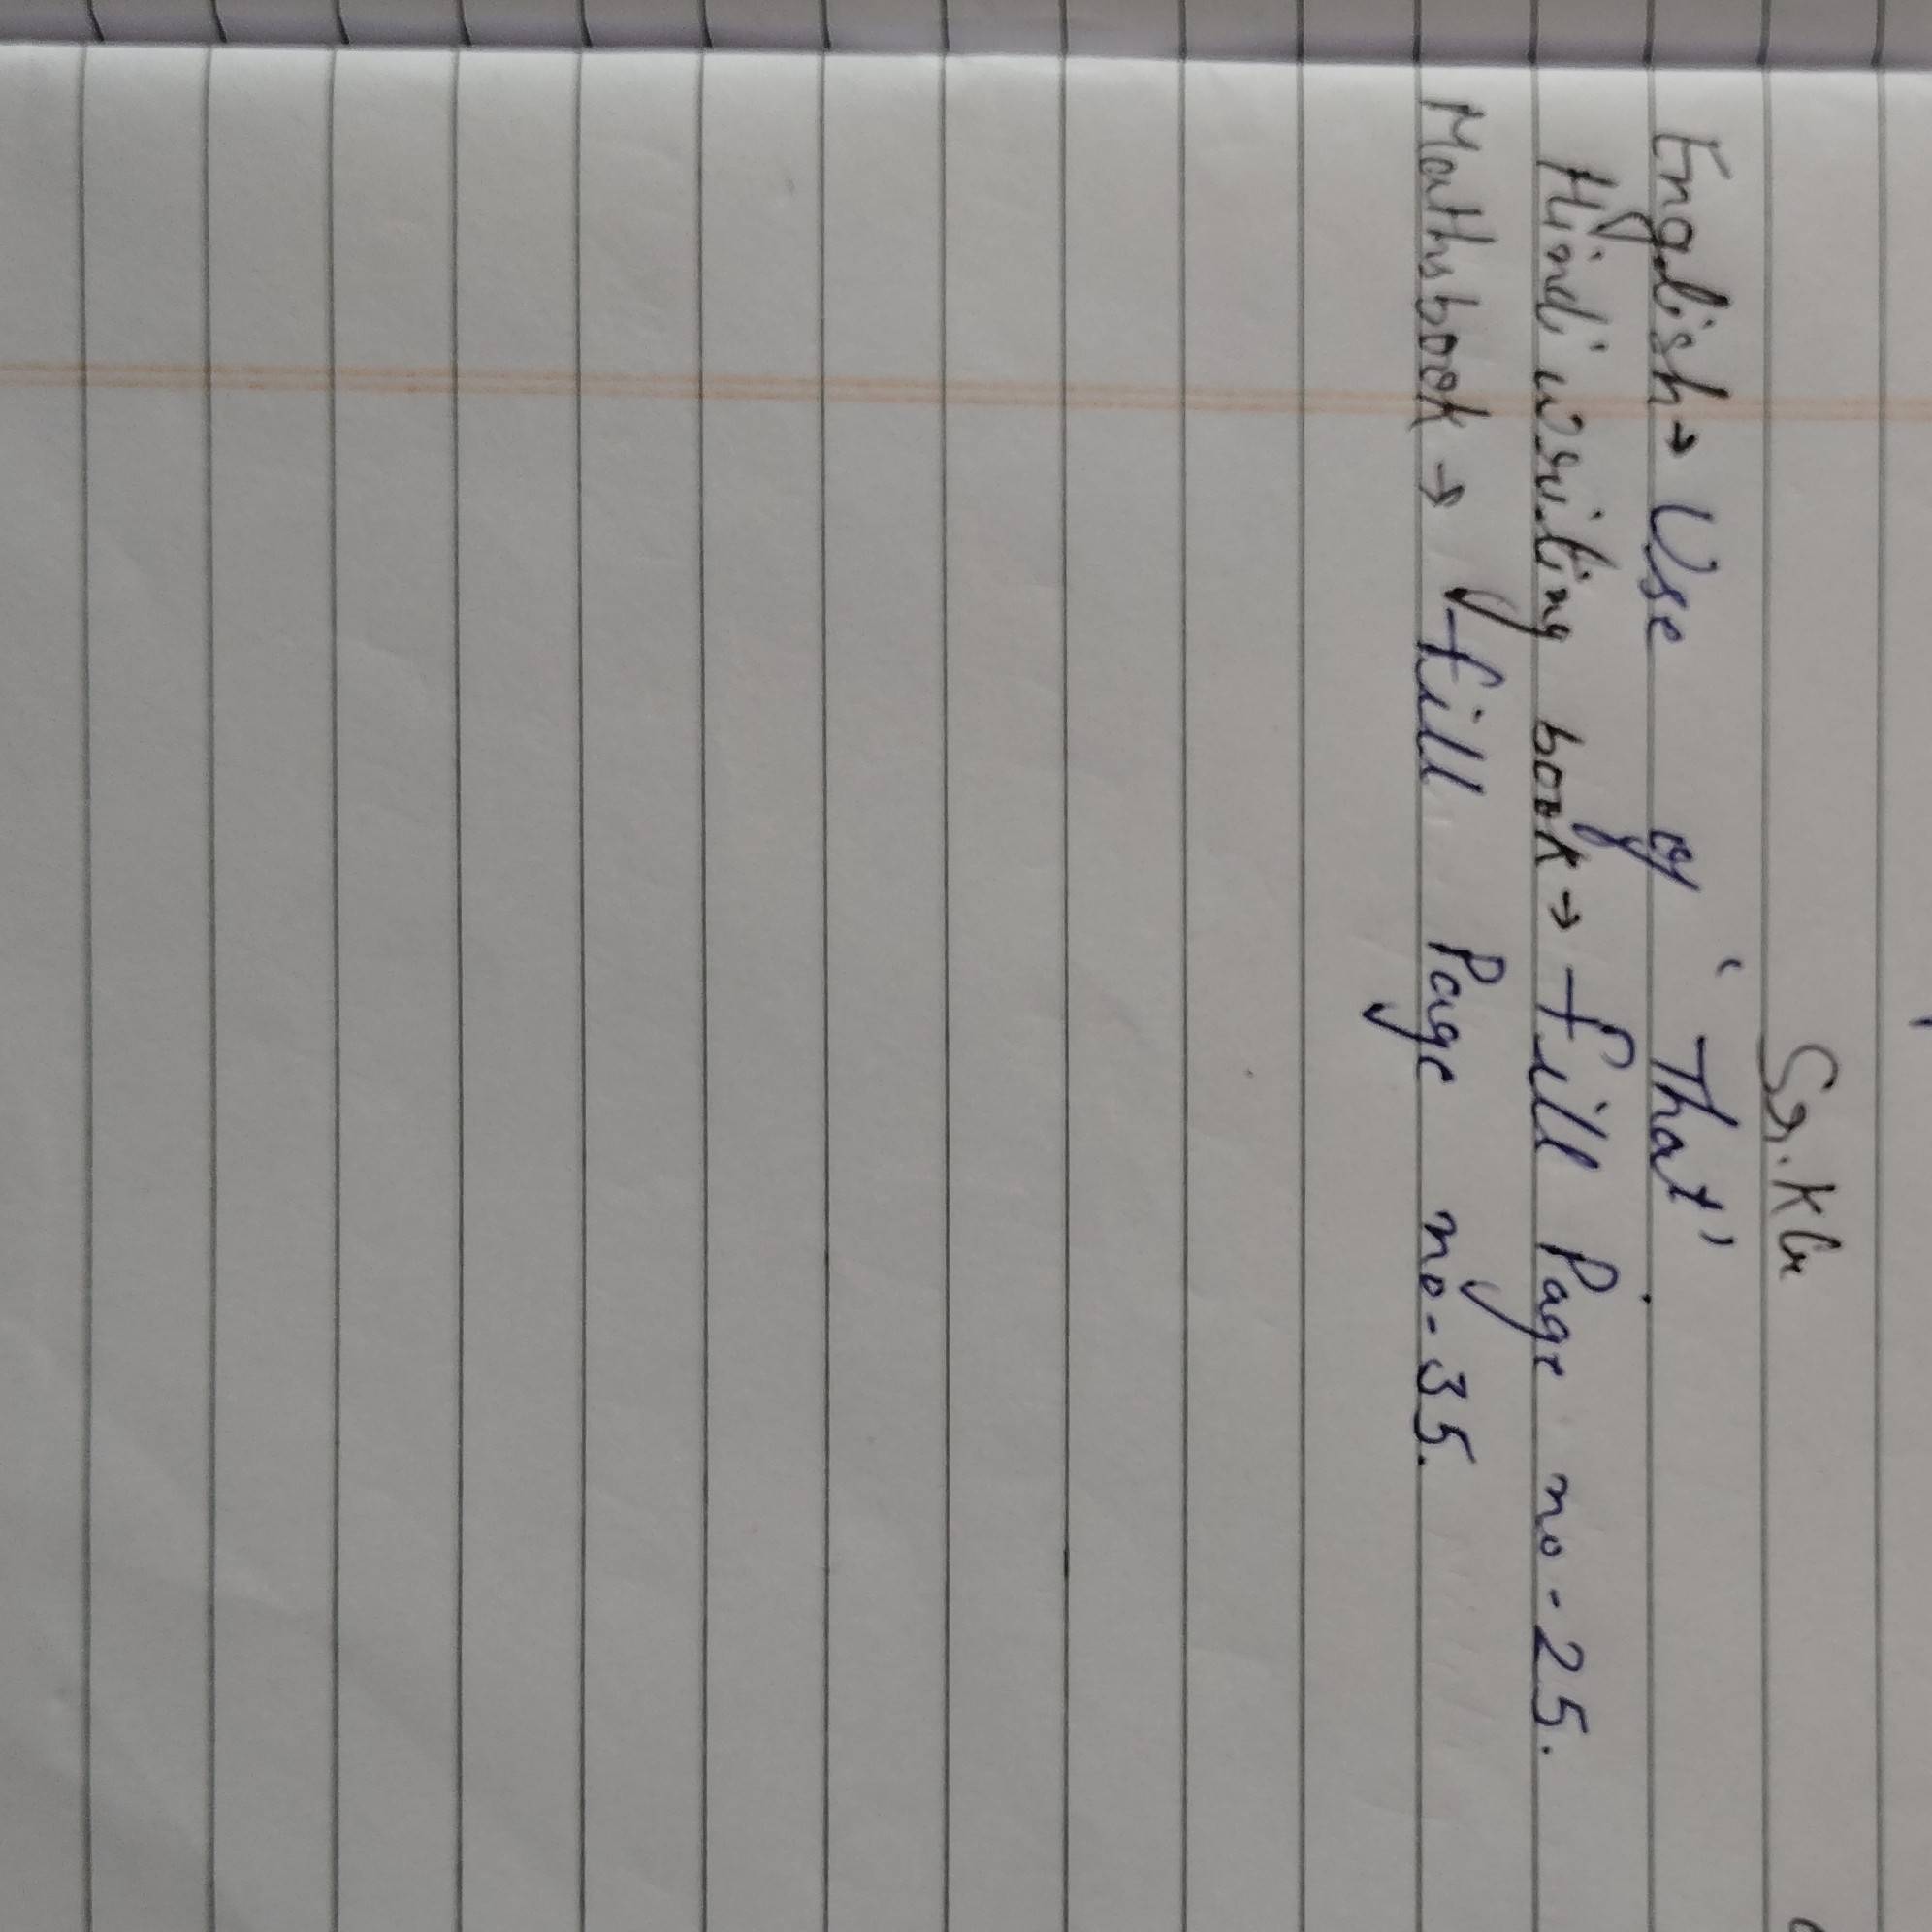 Sr. KG
English → Use of 'That'
Hindi writing book → fill Page no - 25.
Mathsbook → fill Page no - 35.